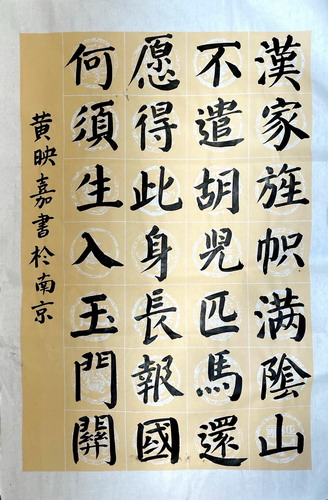 漢家旌帜满陰山
不遣胡児匹馬還
愿得此身長報國
何須生入玉門關
黄映嘉書於南京